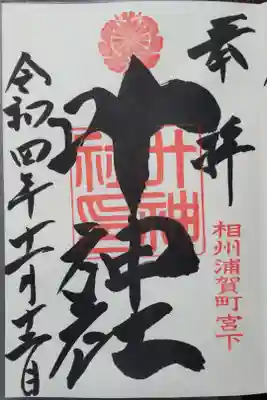 奉拝
相州浦賀町宮下
叶神社
叶神
社印
令和四年十一月日